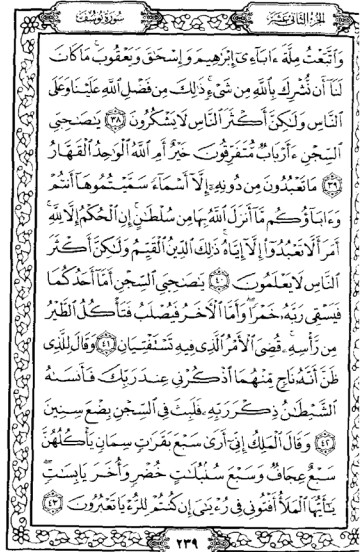 الجزء الثاني عشر
سورة يوسف
وَٱتَّبَعْتُ مِلَّةَ ءَابَآءِىٓ إِبْرَٰهِيمَ وَإِسْحَٰقَ وَيَعْقُوبَ ۚ مَا كَانَ
لَنَآ أَن نُّشْرِكَ بِٱللَّهِ مِن شَىْءٍ ۚ ذَٰلِكَ مِن فَضْلِ ٱللَّهِ عَلَيْنَا وَعَلَى
ٱلنَّاسِ وَلَٰكِنَّ أَكْثَرَ ٱلنَّاسِ لَا يَشْكُرُونَ ٣٨ يَٰصَىٰحِبَىِ
ٱلسِّجْنِ ءَأَرْبَابٌ مُّتَفَرِّقُونَ خَيْرٌ أَمِ ٱللَّهُ ٱلْوَٰحِدُ ٱلْقَهَّارُ
٣٩ مَا تَعْبُدُونَ مِن دُونِهِۦٓ إِلَّآ أَسْمَآءً سَمَّيْتُمُوهَآ أَنتُمْ
وَءَابَآؤُكُم مَّآ أَنزَلَ ٱللَّهُ بِهَا مِن سُلْطَٰنٍ ۚ إِنِ ٱلْحُكْمُ إِلَّا لِلَّهِ ۚ
أَمَرَ أَلَّا تَعْبُدُوٓا۟ إِلَّآ إِيَّاهُ ۚ ذَٰلِكَ ٱلدِّينُ ٱلْقَيِّمُ وَلَٰكِنَّ أَكْثَرَ
ٱلنَّاسِ لَا يَعْلَمُونَ ٤٠ يَٰصَىٰحِبَىِ ٱلسِّجْنِ أَمَّآ أَحَدُكُمَا
فَيَسْقِى رَبَّهُۥ خَمْرًا ۖ وَأَمَّا ٱلْءَاخَرُ فَيُصْلَبُ فَتَأْكُلُ ٱلطَّيْرُ
مِن رَّأْسِهِۦ ۚ قُضِىَ ٱلْأَمْرُ ٱلَّذِى فِيهِ تَسْتَفْتِيَانِ ٤١ وَقَالَ لِلَّذِى
ظَنَّ أَنَّهُۥ نَاجٍ مِّنْهُمَا ٱذْكُرْنِى عِندَ رَبِّكَ فَأَنسَىٰهُ
ٱلشَّيْطَٰنُ ذِكْرَ رَبِّهِۦ فَلَبِثَ فِى ٱلسِّجْنِ بِضْعَ سِنِينَ
٤٢ وَقَالَ ٱلْمَلِكُ إِنِّىٓ أَرَىٰ سَبْعَ بَقَرَٰتٍ سِمَانٍ يَأْكُلُهُنَّ
سَبْعٌ عِجَافٌ وَسَبْعَ سُنۢبُلَٰتٍ خُضْرٍ وَأُخَرَ يَابِسَٰتٍ ۖ
يَٰٓأَيُّهَا ٱلْمَلَأُ أَفْتُونِى فِى رُءْيَٰىَ إِن كُنتُمْ لِلرُّءْيَا تَعْبُرُونَ ٤٣
٢٣٩